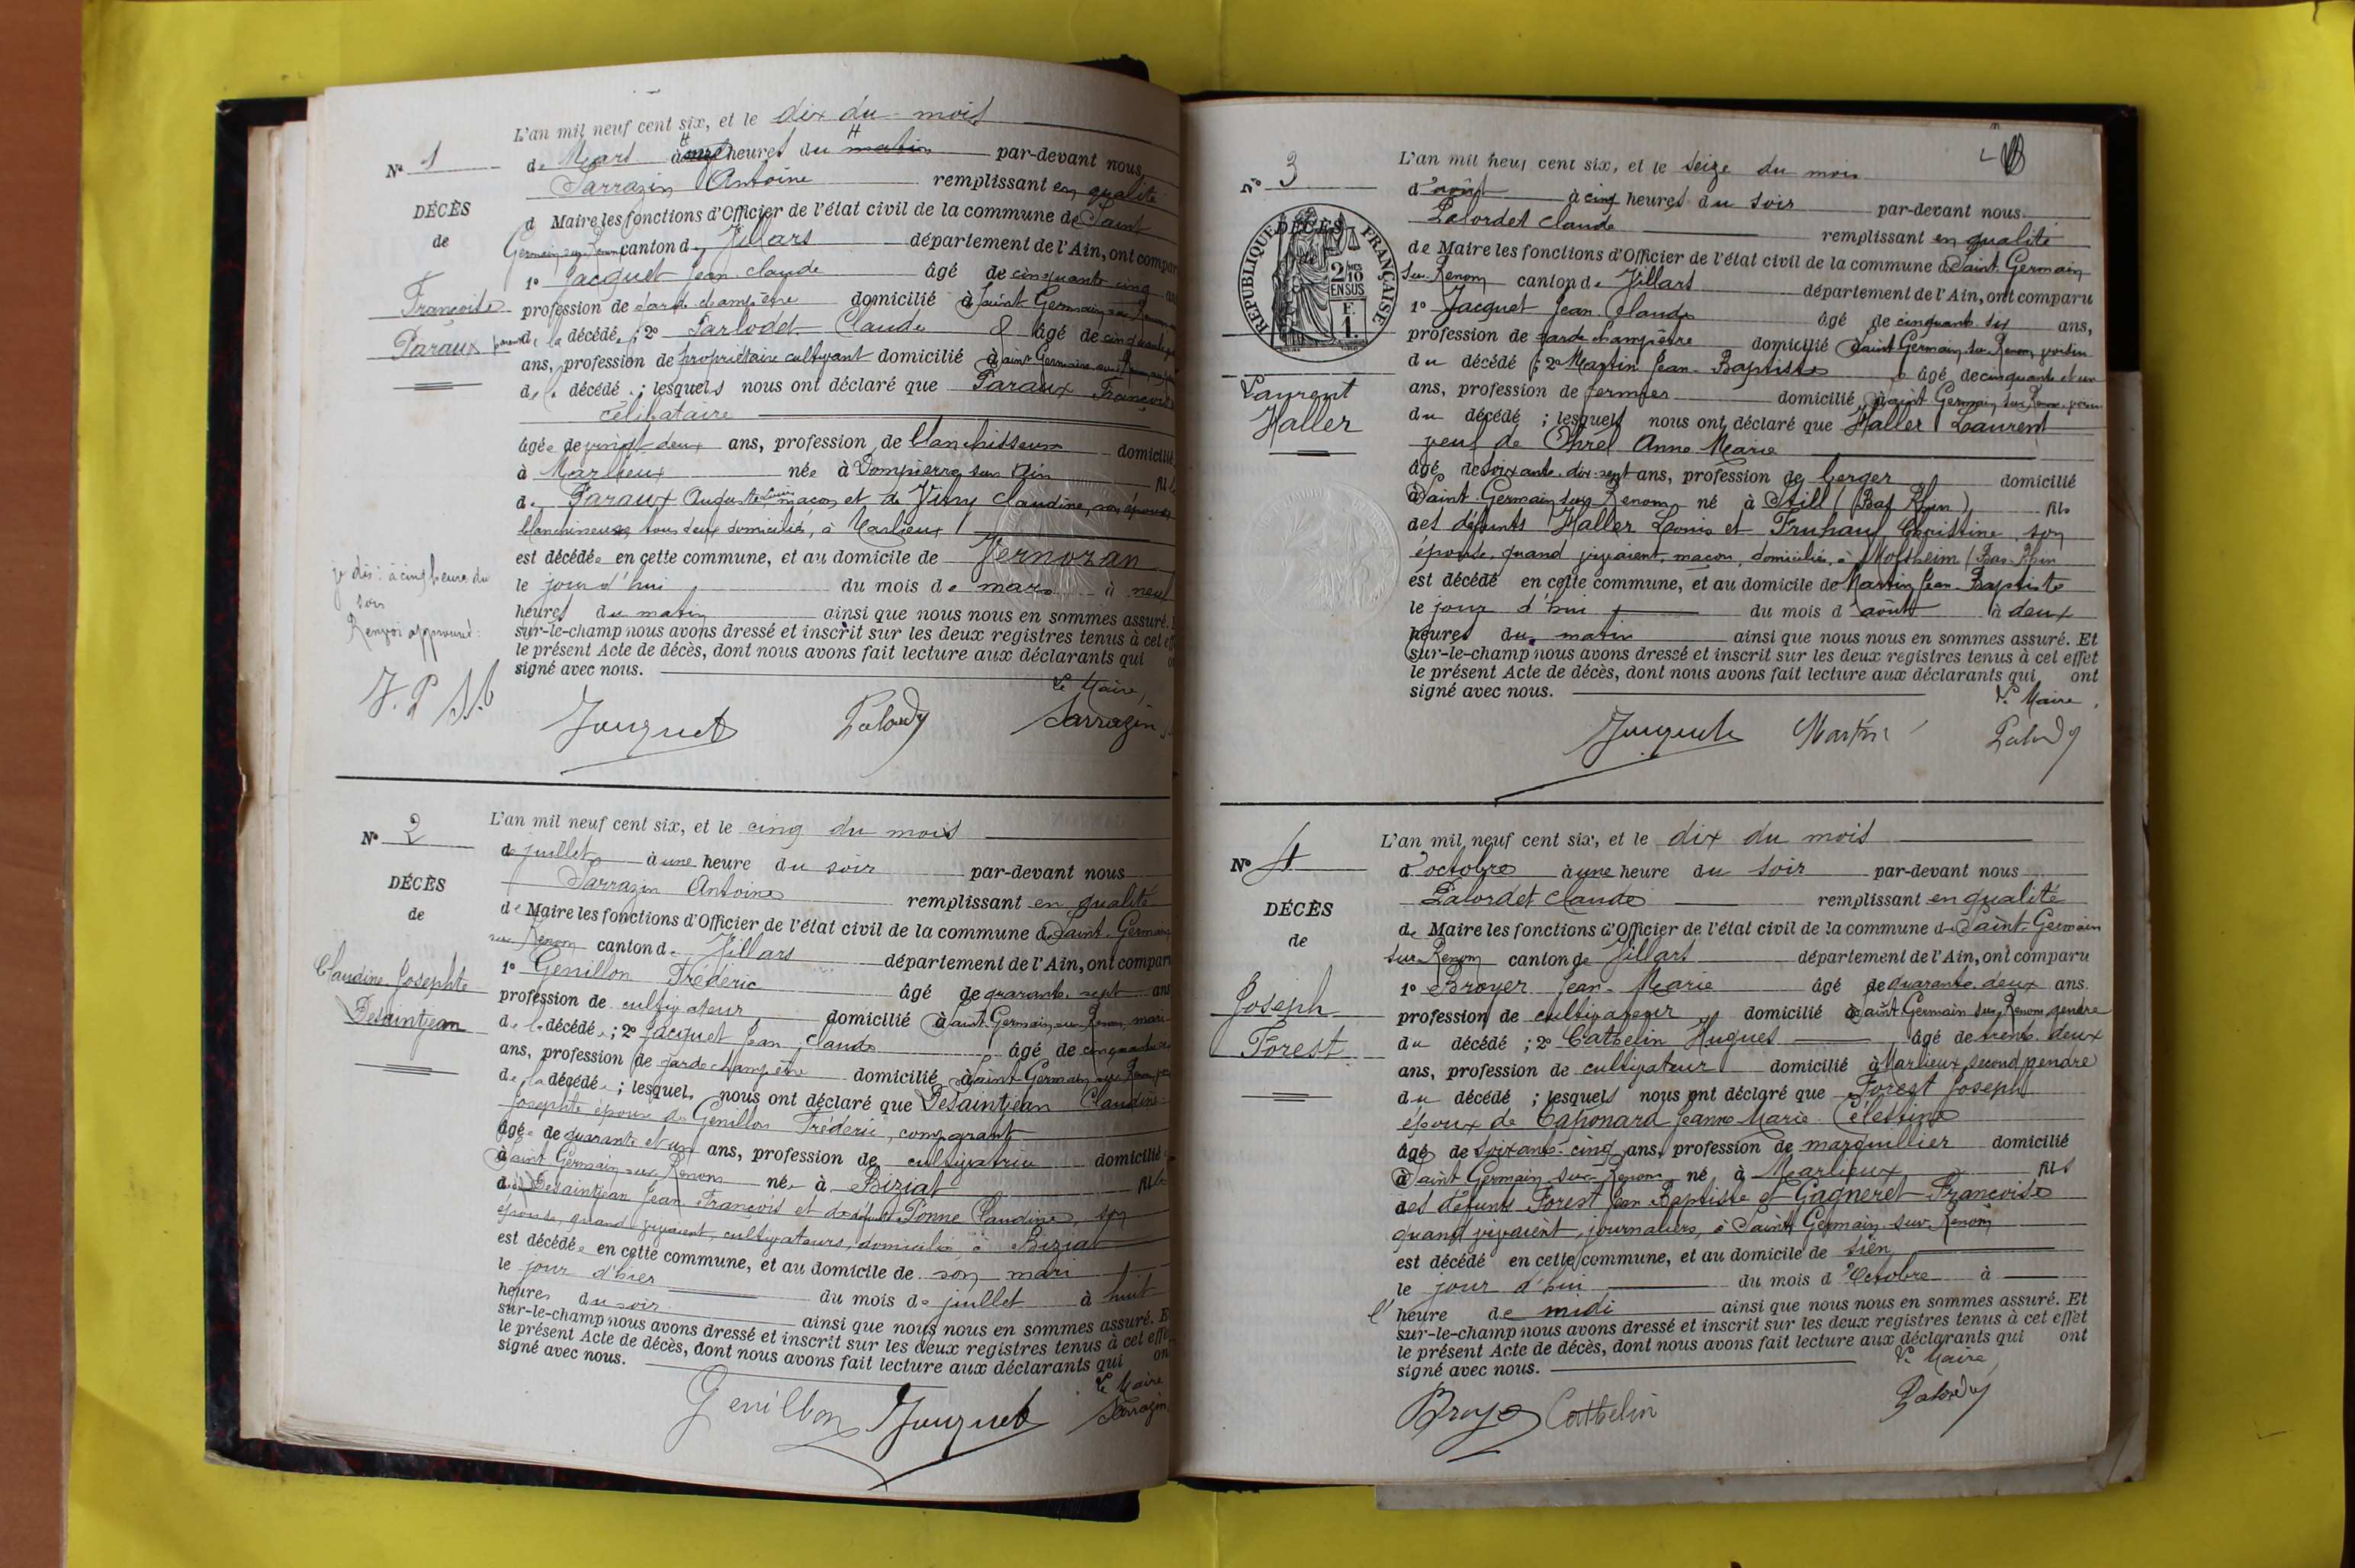 L'an mil neuf cent six, et le dix du mois
Nº 1
de Mars à heures du matin par-devant nous,
Sarrazin Antoine remplissant en qualité
DÉCÈS
de
Françoise
Paraux
d Maire les fonctions d'Officier de l'état civil de la commune de Saint
Germain sur Renom canton de Villars département de l'Ain, ont compar
1º Jacquet Jean Claude âgé de cinquante cinq
profession de garde champêtre domicilié à Saint Germain sur Renom
de la décédée ; 2º Claude âgé de
ans, profession de propriétaire cultivant domicilié à Saint Germain sur Renom
de la décédée ; lesquels nous ont déclaré que Paraux Françoise
célibataire
âgée de vingt deux ans, profession de blanchisseuse domicilié
à Marlieux née à Dompierre sur Ain fil
de Paraux Auguste maçon et de Claudine, son épouse
blanchisseuse tous deux domiciliés, à Marlieux
est décédée en cette commune, et au domicile de Vernozan
le jour d'hui du mois de mars à neuf
heures du matin ainsi que nous nous en sommes assuré.
sur-le-champ nous avons dressé et inscrit sur les deux registres tenus à cet eff
le présent Acte de décès, dont nous avons fait lecture aux déclarants qui
signé avec nous.
je dis : à cinq heures du
soir
Renvoi approuvé :
J. P S. A
Le Maire,
Jacquet Palordet Sarrazin
L'an mil neuf cent six, et le cinq du mois
Nº 2
de juillet à une heure du soir par-devant nous
Sarrazin Antoine remplissant en qualité
DÉCÈS
de
Claudine Josephte
Desaintjean
de Maire les fonctions d'Officier de l'état civil de la commune de Saint-Germain
sur Renom canton de Villars département de l'Ain, ont compar
1º Genillon Frédéric âgé de quarante sept ans
profession de cultivateur domicilié à Saint Germain sur Renom, mari
de la décédée ; 2º Jacquet Jean Claude âgé de cinquante
ans, profession de garde champêtre domicilié à Saint Germain sur Renom
de la décédée ; lesquels nous ont déclaré que Desaintjean Claudine
Josephte épouse de Genillon Frédéric, comparant
âgée de quarante et un ans, profession de cultivatrice domicilié
à Saint Germain sur Renom née à Biziat fille
de Desaintjean Jean François et de défunte Ponne Claudine, son
épouse, quand vivaient, cultivateurs, domiciliés à Biziat
est décédée en cette commune, et au domicile de son mari
le jour d'hier du mois de juillet à huit
heures du soir ainsi que nous nous en sommes assuré. E
sur-le-champ nous avons dressé et inscrit sur les deux registres tenus à cet effe
le présent Acte de décès, dont nous avons fait lecture aux déclarants qui on
signé avec nous.
Le Maire
Genillon Jacquet Sarrazin
L'an mil neuf cent six, et le seize du mois
Nº 3
d'août à cinq heures du soir par-devant nous
Palordet Claude remplissant en qualité
DÉCÈS
RÉPUBLIQUE FRANÇAISE
2/10
EN SUS
F.
1.
Laurent
Haller
de Maire les fonctions d'Officier de l'état civil de la commune de Saint Germain
sur Renom canton de Villars département de l'Ain, ont comparu
1º Jacquet Jean Claude âgé de cinquante six ans,
profession de garde champêtre domicilié à Saint Germain sur Renom, voisin
du décédé ; 2º Martin Jean-Baptiste âgé de cinquante et un
ans, profession de fermier domicilié à Saint Germain sur Renom, voisin
du décédé ; lesquels nous ont déclaré que Haller Laurent
veuf de Ohrel Anne Marie
âgé de soixante-dix-sept ans, profession de berger domicilié
à Saint Germain sur Renom né à Still (Bas Rhin), fils
des défunts Haller Louis et Fruhauf Christine, son
épouse, quand vivaient, maçon, domiciliés, à Molsheim (Bas-Rhin
est décédé en cette commune, et au domicile de Martin Jean-Baptiste
le jour d'hui du mois d'août à deux
heures du matin ainsi que nous nous en sommes assuré. Et
sur-le-champ nous avons dressé et inscrit sur les deux registres tenus à cet effet
le présent Acte de décès, dont nous avons fait lecture aux déclarants qui ont
signé avec nous.
Le Maire,
Jacquet Martin Palordet
L'an mil neuf cent six, et le dix du mois
Nº 4
d'octobre à une heure du soir par-devant nous
Palordet Claude remplissant en qualité
DÉCÈS
de
Joseph
Forest
de Maire les fonctions d'Officier de l'état civil de la commune de Saint-Germain
sur Renom canton de Villars département de l'Ain, ont comparu
1º Broyer Jean-Marie âgé de quarante deux ans.
profession de cultivateur domicilié à Saint Germain sur Renom, gendre
du décédé ; 2º Cathelin Hugues âgé de trente-deux
ans, profession de cultivateur domicilié à Marlieux, second gendre
du décédé ; lesquels nous ont déclaré que Forest Joseph
époux de Caponard Jeanne Marie Célestine
âgé de soixante-cinq ans, profession de marguillier domicilié
à Saint Germain sur Renom né à Marlieux fils
des défunts Forest Jean Baptiste et Gagneret Françoise
quand vivaient, journaliers, à Saint Germain-sur-Renom
est décédé en cette commune, et au domicile de sien
le jour d'hui du mois d'octobre à
l'heure de midi ainsi que nous nous en sommes assuré. Et
sur-le-champ nous avons dressé et inscrit sur les deux registres tenus à cet effet
le présent Acte de décès, dont nous avons fait lecture aux déclarants qui ont
signé avec nous.
Le Maire,
Broyer Cathelin Palordet